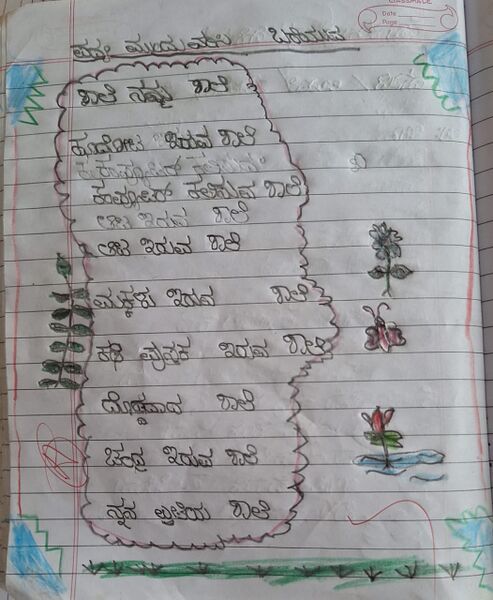 CLASSMATE
Date
Page
ಪದ್ಯ ಮುಂದುವರಿಸಿ ಬರೆಯುವ
ಶಾಲೆ ನಮ್ಮ ಶಾಲೆ
ಹೂದೋಟ ಇರುವ ಶಾಲೆ
ಕಂಪ್ಯೂಟರ್ ಕಲಿಸುವ ಶಾಲೆ
ಆಟ ಇರುವ ಶಾಲೆ
ಆಟ ಇರುವ ಶಾಲೆ
ಮಕ್ಕಳು ಇರುವ ಶಾಲೆ
ಕಥೆ ಪುಸ್ತಕ ಇರುವ ಶಾಲೆ
ದೊಡ್ಡದಾದ ಶಾಲೆ
ಇರುವ ಶಾಲೆ
ನನ್ನ ಪ್ರೀತಿಯ ಶಾಲೆ